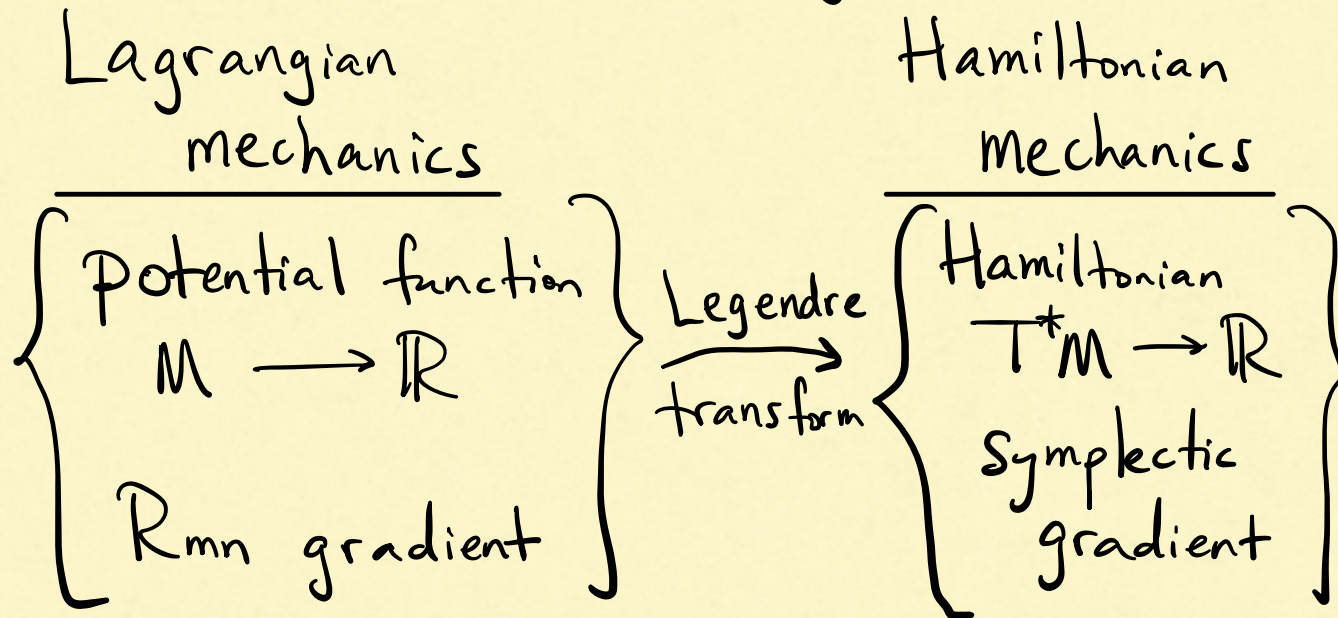 Lagrangian
mechanics
potential function
M → ℝ
Rmn gradient
Legendre
transform
Hamiltonian
mechanics
Hamiltonian
T*M → ℝ
Symplectic
gradient